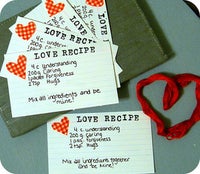 LOVE RECIPE
4 c. understanding
200g Caring
Ladle Forgiveness
2 tsp Hugs
Mix all ingredients and be
mine!
LOVE RECIPE
4 c. understanding
200g Caring
Ladle Forgiveness
2 tsp Hugs
Mix all ingredients together
and be mine!